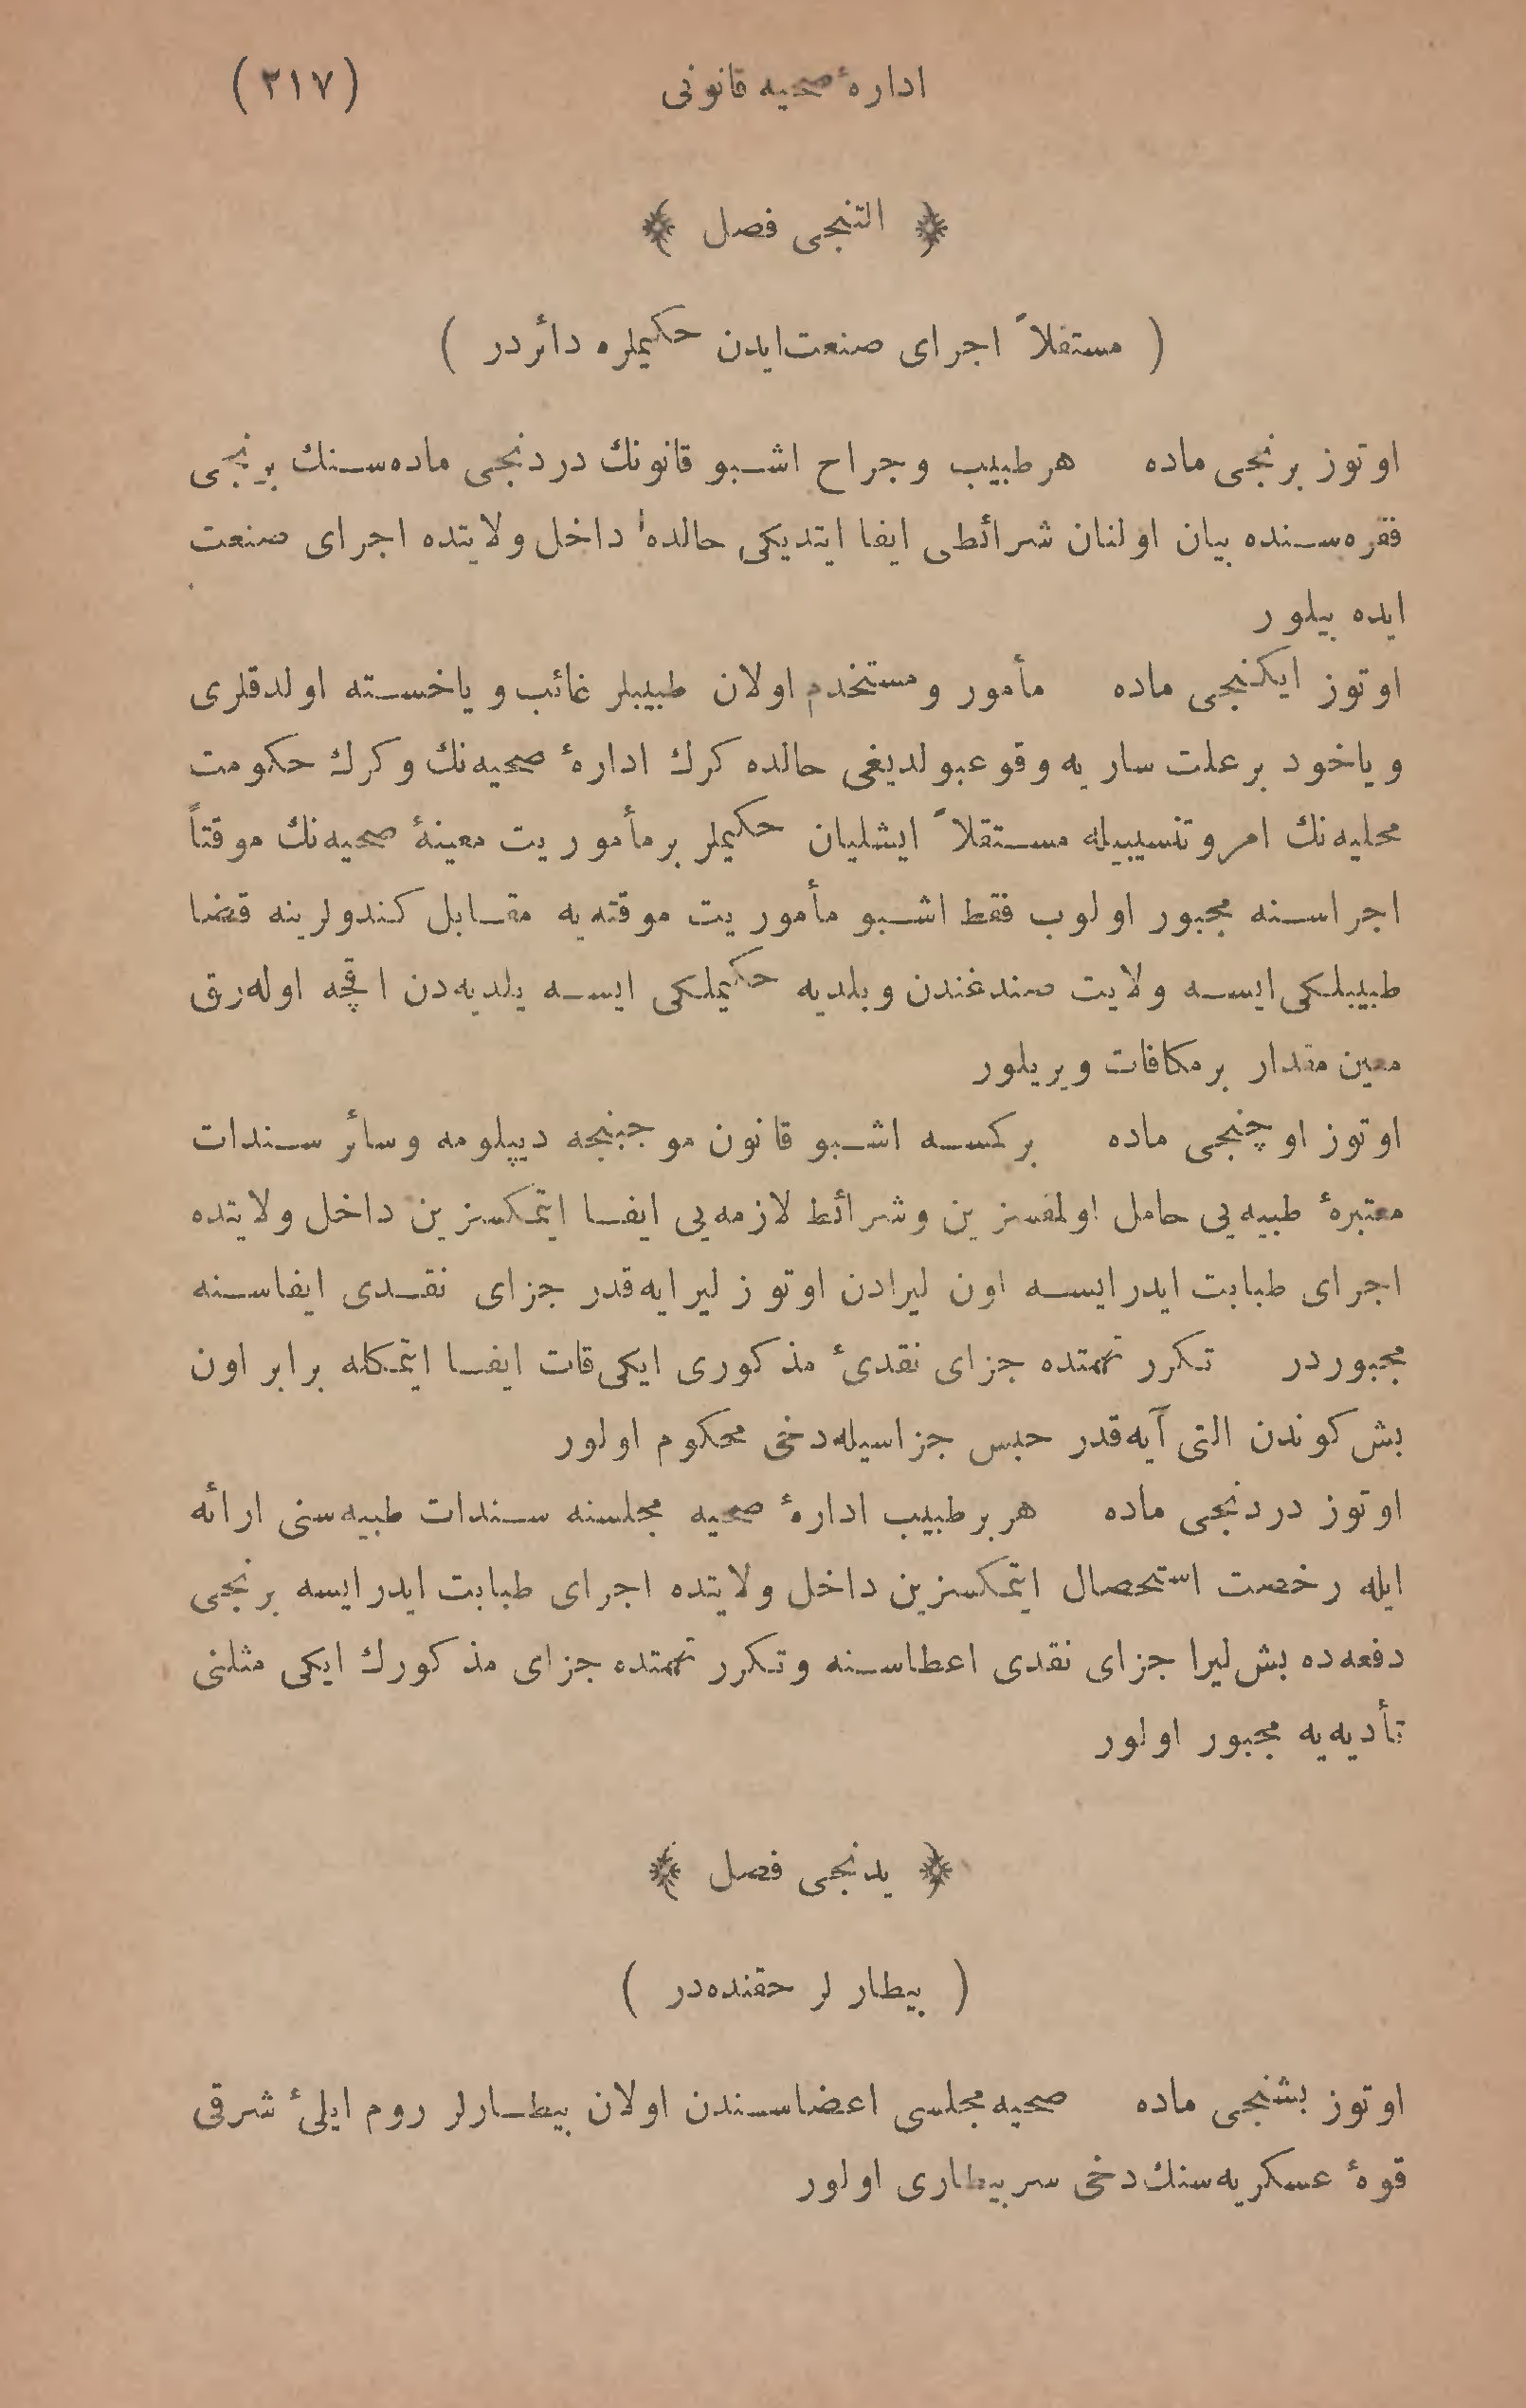 ادارهٔ صحیه قانونی (٣١٧)
﴿ التنجی فصل ﴾
( مستقلاً اجرای صنعت ایدن حکیملره دائردر )
اوتوز برنجی ماده هر طبیب و جراح اشبو قانونك دردنجی ماده‌سنك برنجی
فقره‌سنده بیان اولنان شرائطی ایفا ایتدیکی حالده داخل ولایتده اجرای صنعت
ایده بیلور
اوتوز ایکنجی ماده مأمور و مستخدم اولان طبیبلر غائب و یا خسته اولدقلری
و یاخود بر علت ساریه وقوعبولدیغی حالده كرك ادارهٔ صحیه‌نك و كرك حکومت
محلیه‌نك امر و تنسیبیله مستقلاً ایشلیان حکیملر بر مأموریت معینهٔ صحیه‌نك موقتاً
اجراسنه مجبور اولوب فقط اشبو مأموریت موقته‌یه مقابل کندولرینه قضا
طبیبلکی ایسه ولایت صندغندن و بلدیه حکیملکی ایسه بلدیه‌دن اقچه اوله‌رق
معین مقدار بر مکافات ویریلور
اوتوز اوچنجی ماده بر کمسه اشبو قانون موجبنجه دیپلومه و سائر سندات
معتبرهٔ طبیه‌یی حامل اولمقسزین و شرائط لازمه‌یی ایفا ایتمکسزین داخل ولایتده
اجرای طبابت ایدر ایسه اون لیرادن اوتوز لیرایه قدر جزای نقدی ایفاسنه
مجبوردر تکرر تهمتده جزای نقدیٔ مذکوری ایکی قات ایفا ایتمکله برابر اون
بش کوندن التی آیه قدر حبس جزاسیله دخی محکوم اولور
اوتوز دردنجی ماده هر بر طبیب ادارهٔ صحیه مجلسنه سندات طبیه‌سنی ارائه
ایله رخصت استحصال ایتمکسزین داخل ولایتده اجرای طبابت ایدر ایسه برنجی
دفعه‌ده بش لیرا جزای نقدی اعطاسنه و تکرر تهمتده جزای مذکورك ایکی مثلنی
تأدیه‌یه مجبور اولور
﴿ یدنجی فصل ﴾
( بیطارلر حقنده‌در )
اوتوز بشنجی ماده صحیه مجلسی اعضاسندن اولان بیطارلر روم ایلیٔ شرقی
قوهٔ عسکریه‌سنك دخی سر بیطاری اولور